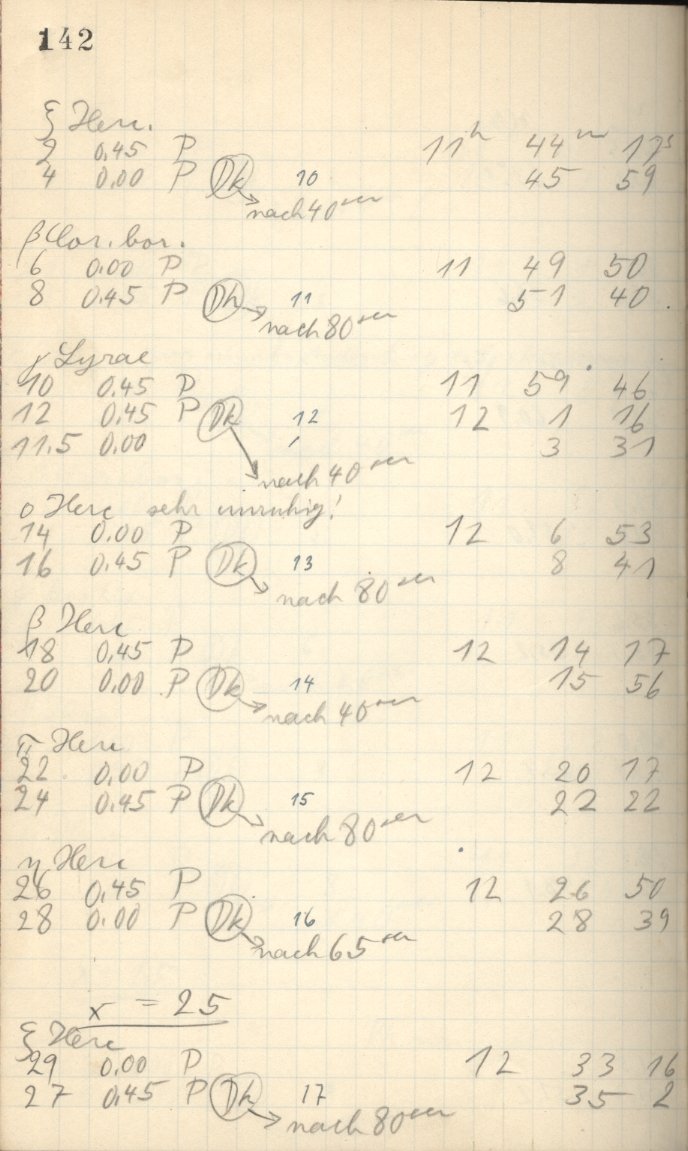 142
ξ Herc.
2 0.45 P 11h 44m 17s
4 0.00 P Dk 10 45 59
nach 40 sec
β Cor. bor.
6 0.00 P 11 49 50
8 0.45 P Dk 11 51 40
nach 80 sec
γ Lyrae
10 0.45 P 11 59 46
12 0.45 P Dk 12 12 1 16
11.5 0.00 3 31
nach 40 sec
o Herc sehr unruhig!
14 0.00 P 12 6 53
16 0.45 P Dk 13 8 41
nach 80 sec
β Herc
18 0.45 P 12 14 17
20 0.00 P Dk 14 15 56
nach 40 sec
π Herc
22 0.00 P 12 20 17
24 0.45 P Dk 15 22 22
nach 80 sec
η Herc
26 0.45 P 12 26 50
28 0.00 P Dk 16 28 39
nach 65 sec
x = 25
ξ Herc
29 0.00 P 12 33 16
27 0.45 P Dk 17 35 2
nach 80 sec